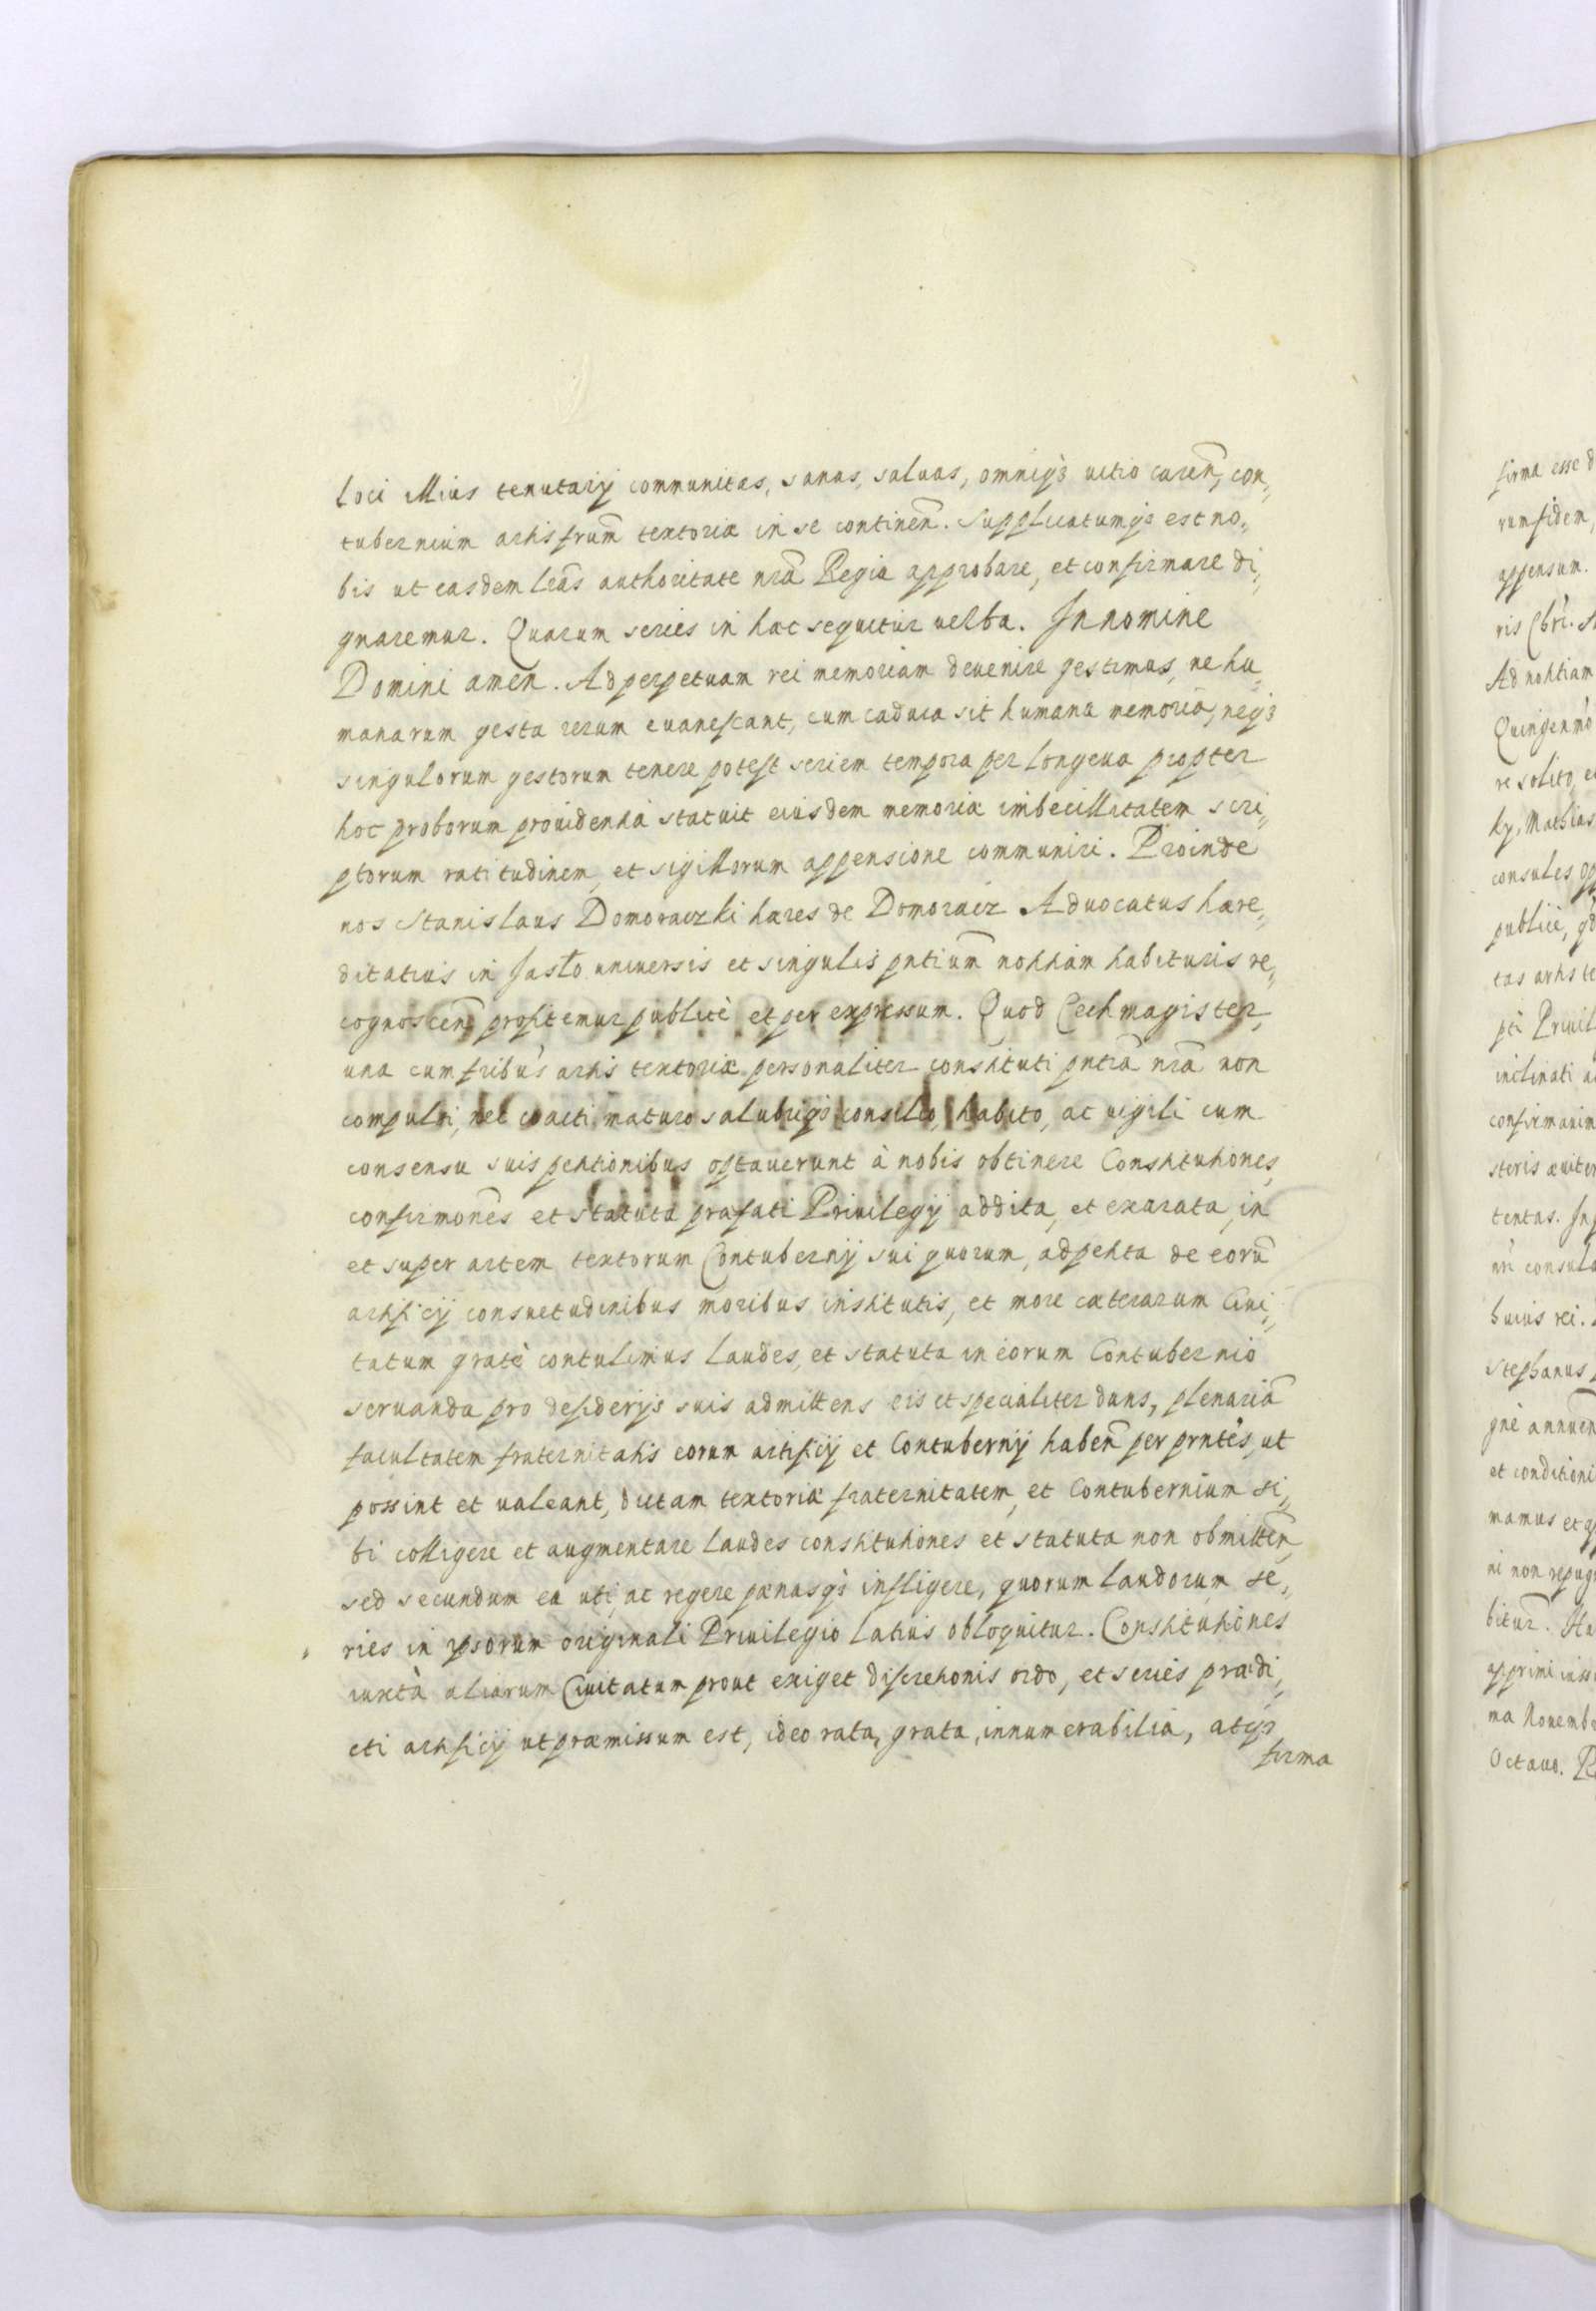 loci illius tenutarij communitas, sanas, saluas, omniq3 uitio caren̄, con„
tubernium artis frum̄ textoriæ in se continen̄. Supplicatumq3 est no„
bis ut easdem lr̄as authoritate nr̄a Regia approbare, et confirmare di„
gnaremur. Quarum series in hæc sequitur uerba. In nomine
Domini amen. Ad perpetuam rei memoriam deuenire gestimus, ne hu„
manarum gesta rerum euanescant, cum caduca sit humana memoria, neq3
singulorum gestorum tenere potest seriem tempora per longeua propter
hoc proborum prouidentia statuit eiusdem memoriæ imbecillitatem scri„
ptorum ratitudinem, et sigillorum appensione communiri. Proinde
nos Stanislaus Domoraczki hæres de Domoracz Aduocatus hære„
ditatius in Jasło uniuersis et singulis pntium̄ notitiam habituris re„
cognoscen̄ profitemur publicè et per expressum. Quod Cechmagister,
una cum fribus artis textoriæ personaliter constituti pntiā nrā non
compulsi, nec coacti, maturo salubriq3 consilio, habito, ac uigili cum
consensu suis petitionibus optauerunt à nobis obtinere Constitutiones,
confirmones et statuta præfati Priuilegij addita, et exarata, in
et super artem textorum Contubernij sui quorum, adpetita de eorū
artificij consuetudinibus moribus institutis, et more cæterarum Ciui„
tatum gratè contulimus laudes, et statuta in eorum Contubernio
seruanda pro desiderijs suis admittens eis et specialiter dans, plenariā
facultatem fraternitatis eorum artificij et Contubernij haben̄ per prntes, ut
possint et ualeant, dictam textoriæ fraternitatem, et Contubernium si„
bi colligere et augmentare laudes constitutiones et statuta non obmitten̄,
sed secundum ea uti, ac regere pænasq3 infligere, quorum laudorum se„
ries in ipsorum originali Priuilegio latius obloquitur. Constitutiones
iuxtà aliarum Ciuitatum prout exiget discretionis ordo, et series prædi„
cti artificij ut præmissum est, ideo rata, grata, innumerabilia, atq3
firma